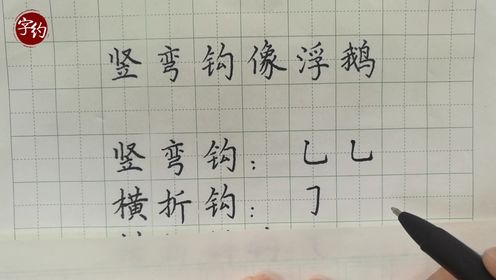 字约
竖弯钩像浮鹅
竖弯钩：乚乚
横折钩：𠃌